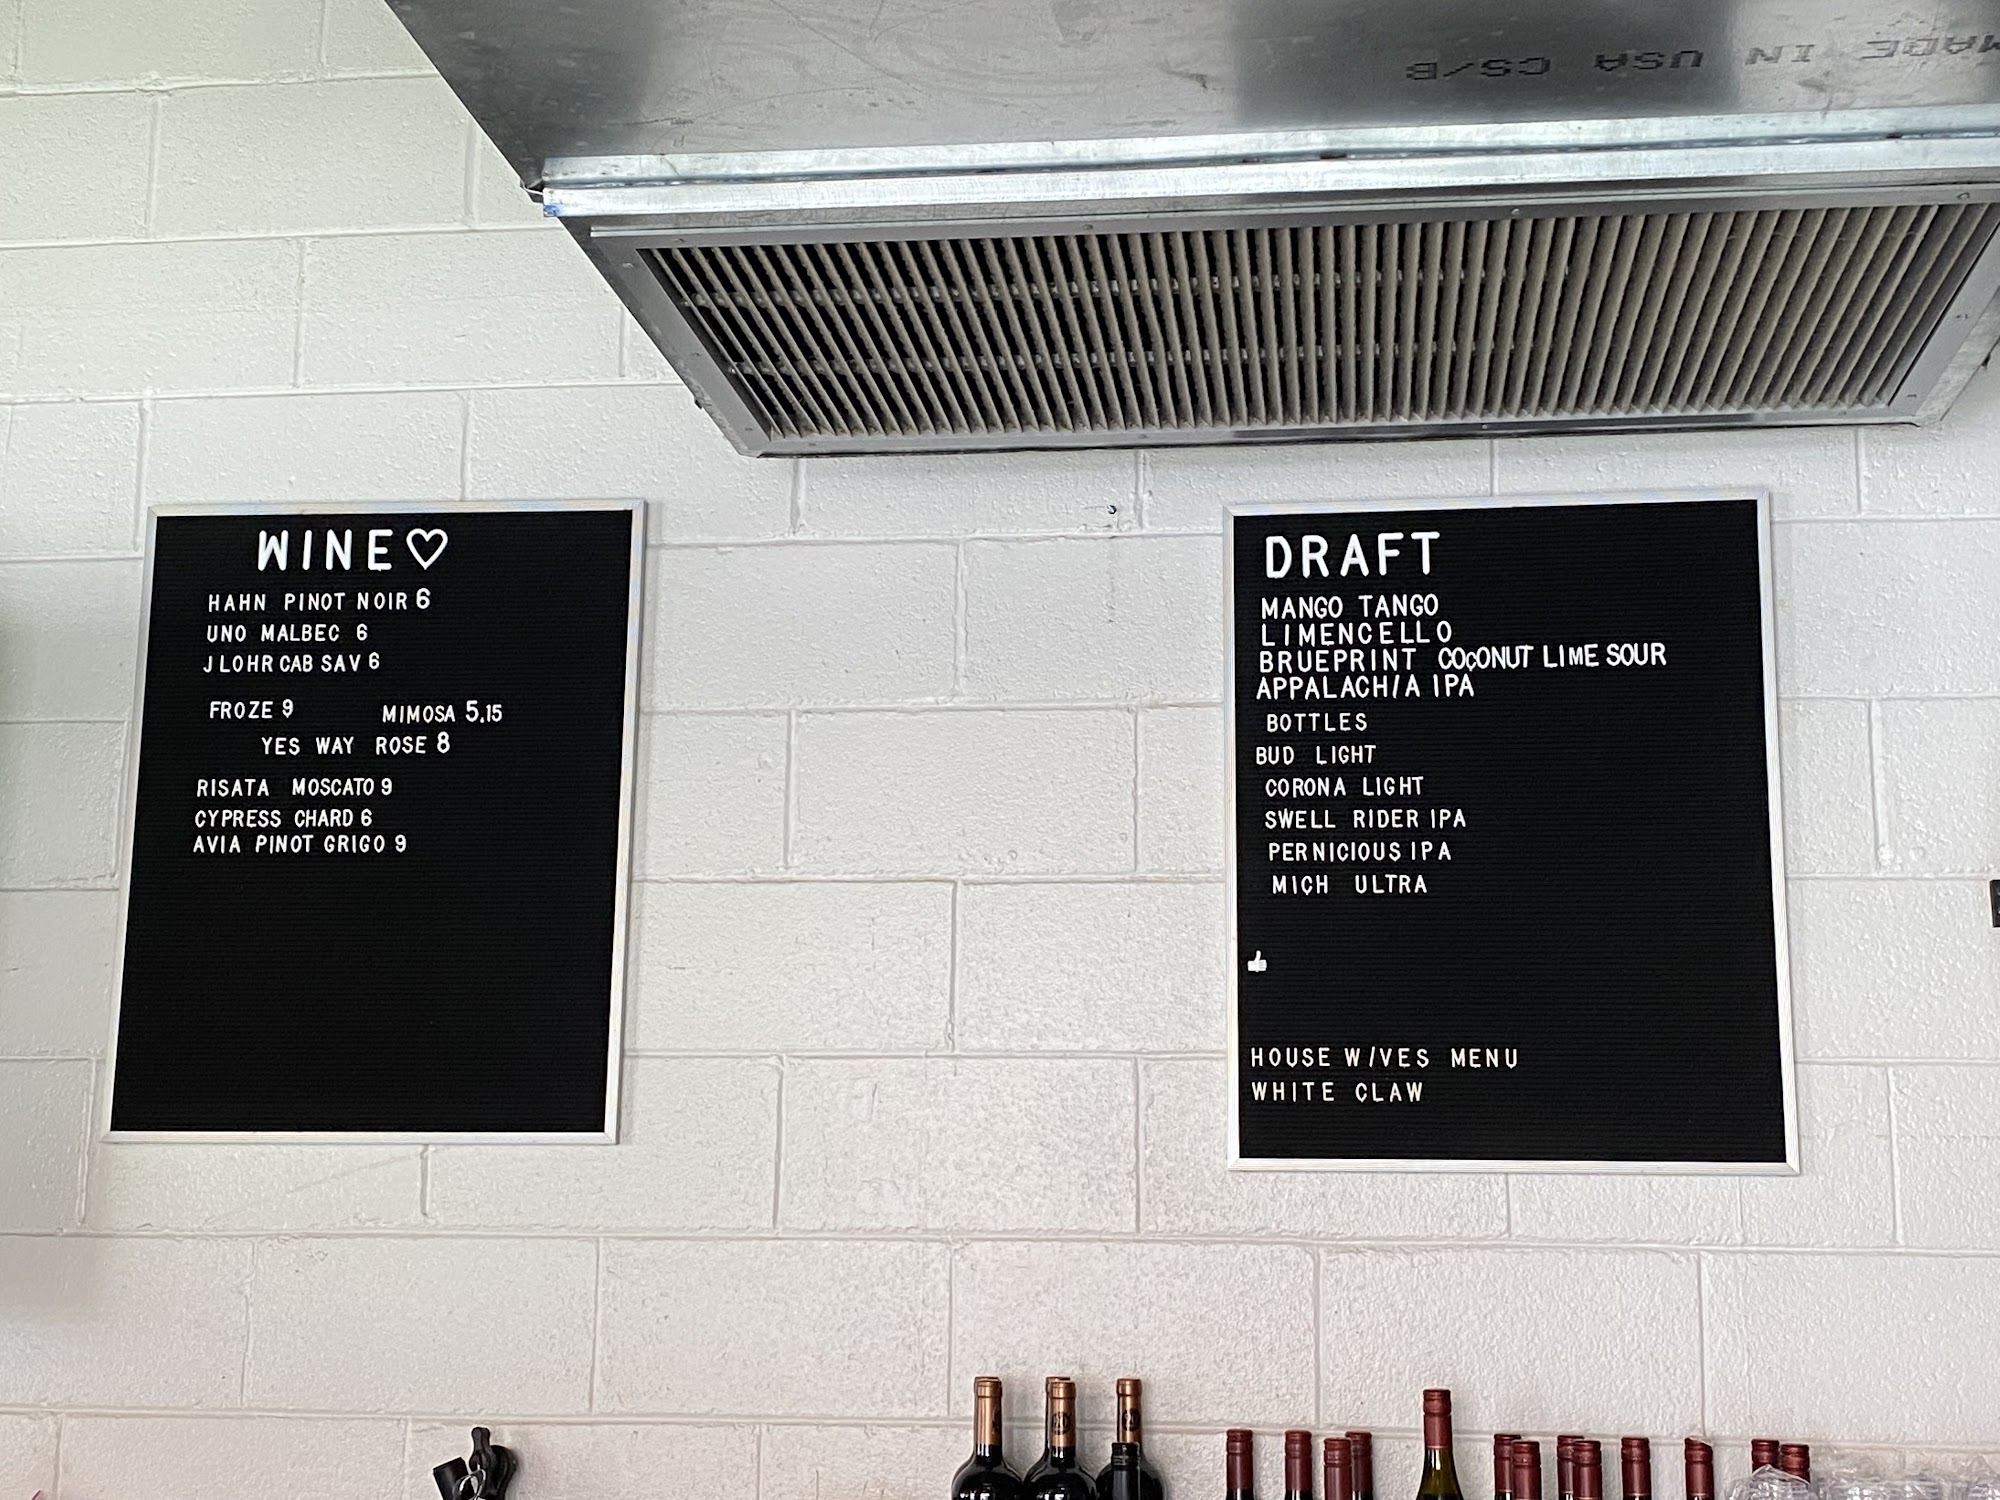 MADE IN USA CS/B
WINE♡
HAHN PINOT NOIR 6
UNO MALBEC 6
J LOHR CAB SAV 6
FROZE 9 MIMOSA 5.15
YES WAY ROSE 8
RISATA MOSCATO 9
CYPRESS CHARD 6
AVIA PINOT GRIGO 9
DRAFT
MANGO TANGO
LIMENCELLO
BRUEPRINT COCONUT LIME SOUR
APPALACH/A IPA
BOTTLES
BUD LIGHT
CORONA LIGHT
SWELL RIDER IPA
PERNICIOUS IPA
MICH ULTRA
👍
HOUSE W/VES MENU
WHITE CLAW